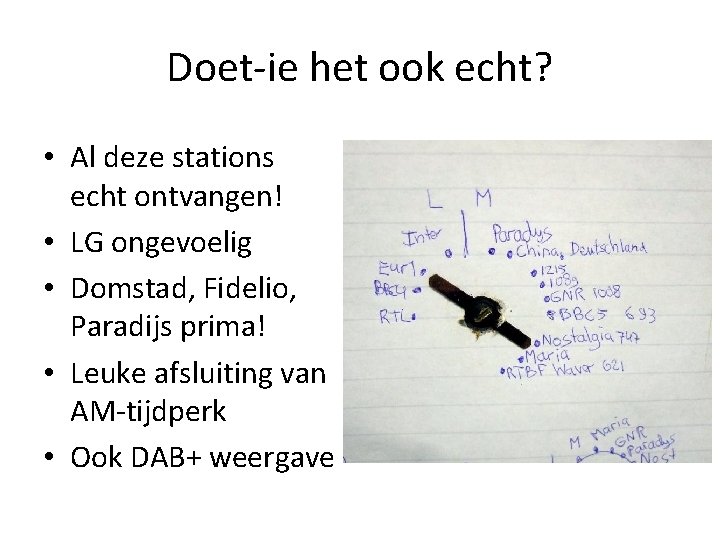 Doet-ie het ook echt?
• Al deze stations
echt ontvangen!
• LG ongevoelig
• Domstad, Fidelio,
Paradijs prima!
• Leuke afsluiting van
AM-tijdperk
• Ook DAB+ weergave
L M
Inter
Paradys
China, Deutschland
Eur1
1215
1089
BBC4
GNR 1008
RTL
BBC5 693
Nostalgia 747
Maria
RTBF Waver 621
M Maria
GNR
Paradys
Nost